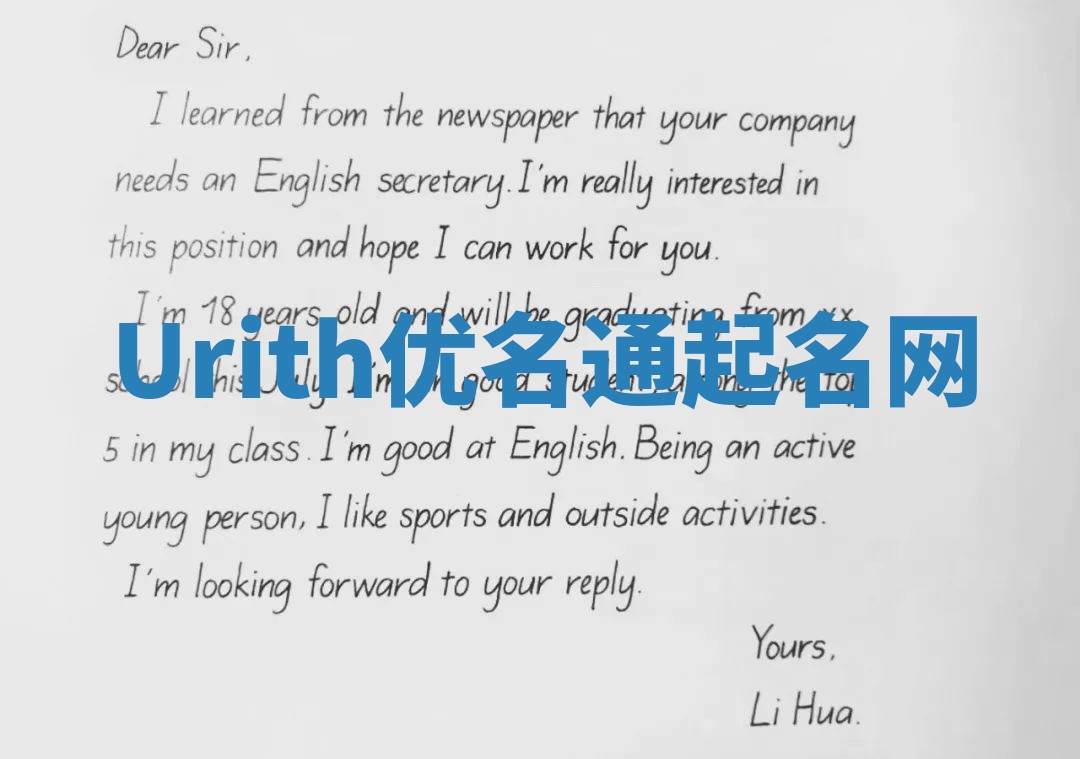 Dear Sir,
I learned from the newspaper that your company
needs an English secretary. I'm really interested in
this position and hope I can work for you.
I'm 18 years old and will be graduating from xx
Urith优名通起名网
school this July. I'm a good student, among the top
5 in my class. I'm good at English. Being an active
young person, I like sports and outside activities.
I'm looking forward to your reply.
Yours,
Li Hua.